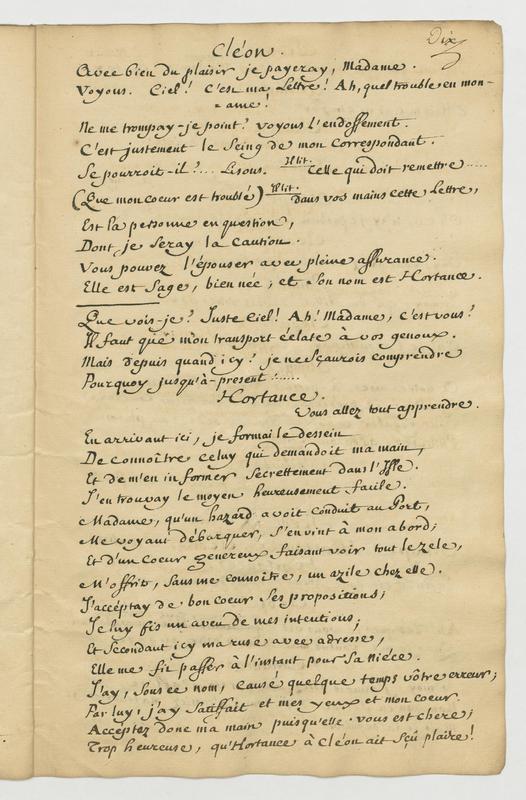 Dix
Cléon.
Avec bien du plaisir je payeray, Madame.
Voyous. Ciel! C'en ma Lettre! Ah, quel trouble en mon-
-ame!
Ne me trompay-je point? voyous l'endossement.
C'est justement le Seing de mon Correspondant.
Se pourroit-il?... Lisons. Il lit. Celle qui doit remettre......
(Que mon coeur est troublé) Il lit. dans vos mains cette Lettre,
Est la personne en question,
Dont je Seray la Caution.
Vous pouvez l'épouser avec pleine assurance.
Elle est Sage, bien née; et Son nom est Hortance.
Que vois-je? Juste Ciel! Ah! Madame, c'est vous?
Il faut que mon transport éclate à vos genoux.
Mais depuis quand icy? je ne Sçaurois comprendre
Pourquoy jusqu'à-present ......
Hortance.
Vous allez tout apprendre.
En arrivant ici, je formai le dessein
De connoître celuy qui demandoit ma main,
Et de m'en informer Secrettement dans l'Isle.
J'en trouvay le moyen heureusement facile.
Madame, qu'un hazard avoit conduit au Port,
Me voyant débarquer, S'en vint à mon abord;
Et d'un Coeur généreux faisant voir tout le zele,
M'offrit, Sans me connoître, un azile chez elle.
J'accéptay de bon coeur Ses propositions;
Je luy fis un aveu de mes intentions;
Et Secondant icy ma ruse avec adresse,
Elle me fit passer à l'instant pour Sa niéce.
J'ay, Sous ce nom, causé quelque temps vôtre erreur;
Par luy, j'ay Satisfait et mes yeux et mon coeur.
Accéptez donc ma main puisqu'elle vous est chere;
Trop heureuse, qu'Hortance à Cléon ait Sçû plaire!